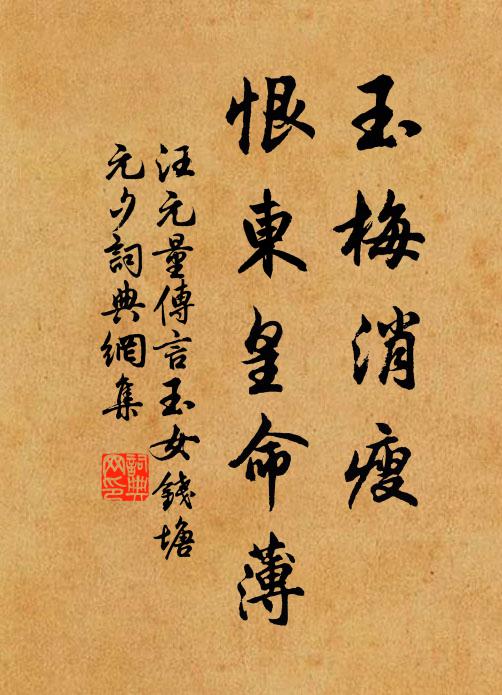 玉梅消瘦
恨東皇命薄
汪元量傳言玉女錢塘
元夕詞典網集
詞典
网印